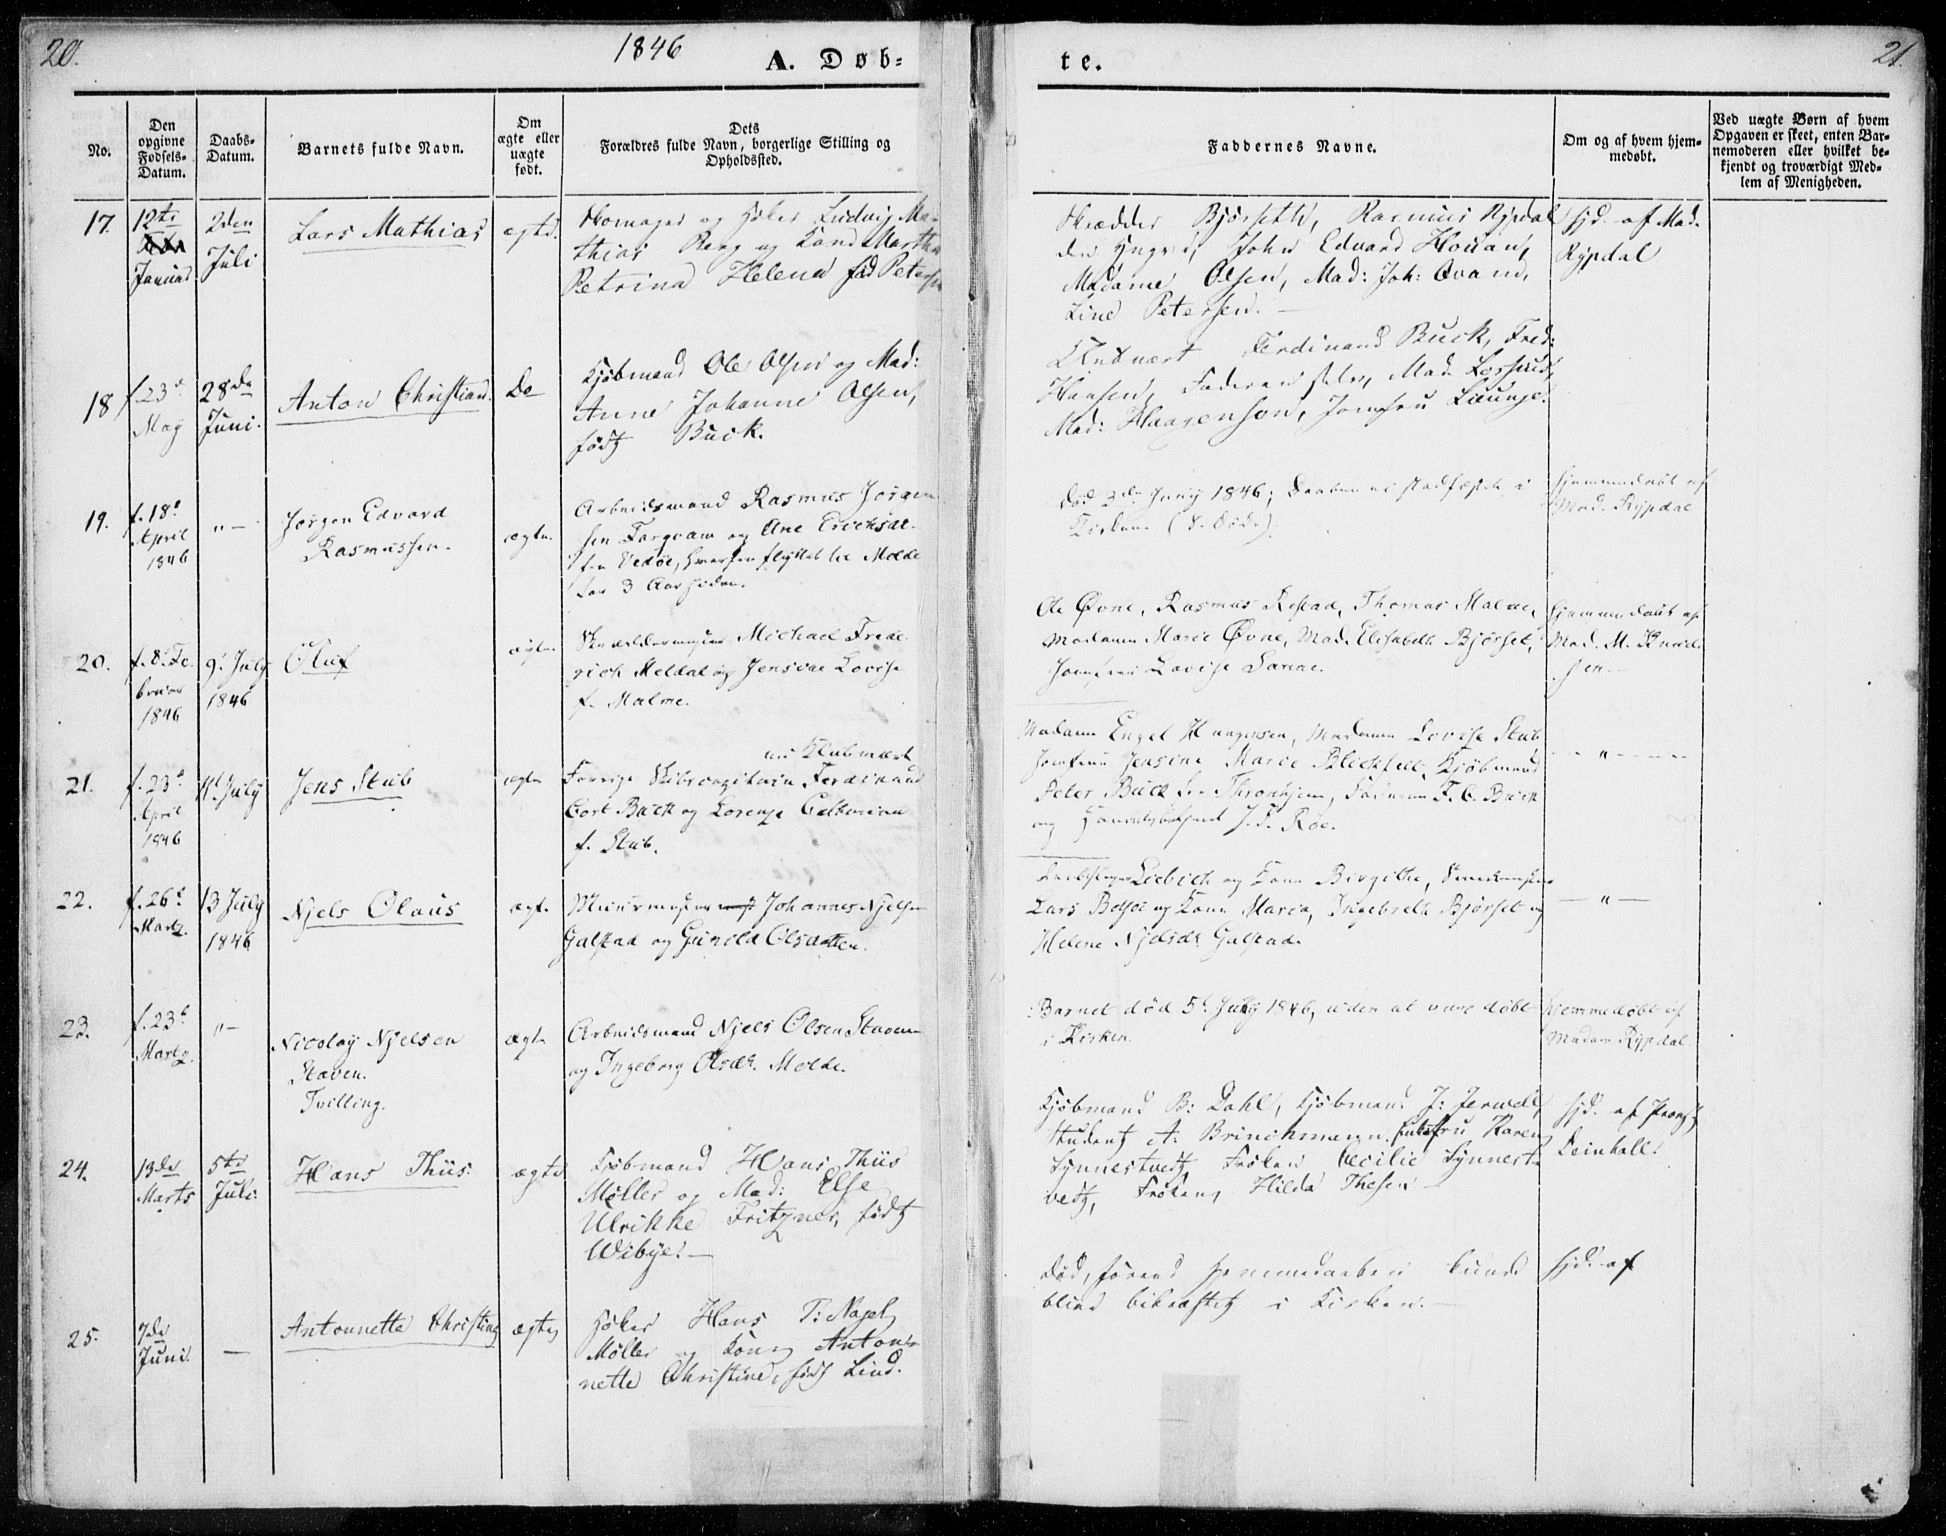 20.
1846
A. Døb-
te.
21.
No.
Den
opgivne
Fødsels-
Datum.
Daabs-
Datum.
Barnets fulde Navn.
Om
ægte eller
uægte
født.
Dets
Forældres fulde Navn, borgerlige Stilling og
Opholdssted.
Faddernes Navne.
Om og af hvem hjem-
medøbt.
Ved uægte Børn af hvem
Opgaven er skeet, enten Bar-
nemoderen eller hvilket be-
kjendt og troværdigt Med-
lem af Menigheden.
17.
12te
Januar
2den
Juli
Lars Mathias
ægte.
Skomager og Høker Ludvig Ma-
thias Berg og Kone Martha
Petrina Helena fød Petersen
Skrædder Bjørseth, Rasmus Rypdal
John Edvard Houan,
Madame Olsen, Mad: Joh:
Line Petersen.
hjd. af Mad.
Rypdal
18
f. 23de
May
28de
Juni.
Anton Christian.
Do
Kjøbmand Ole Olsen og Mad:
Anne Johanne Olsen,
født Buck.
Ferdinand Buck, Fred:
Hansen, Faderen selv, Mad.
Mad: Haagensen, Jomfru
19.
f. 18de
April
1846
"—
Jørgen Edvard
Rasmussen.
ægte.
Arbeidsmand Rasmus Jørgen-
sen Torgvam og Ane Erichsdat-
ter Vedøe, flyttet til Molde
for 3 Aar siden.
Død 3de Juny 1846; Daaben ei stadfæstet i
Kirken
hjemmedøbt af
Mad. Rypdal
20.
f. 8de Fe-
bruar
1846
9de July
1846
Oluf
ægte.
Skræddermester Michael Frede-
rich Meldal og Jensine Lovise
f. Malme.
Ole Øvne, Rasmus Restad, Thomas Malme,
Madame Marie Øvne, Mad. Elisabeth Bjørset,
Jomfru Lovise Sanne.
hjemmedøbt af
Mad. M. Knud-
sen
21.
f. 23de
April
1846
11te July
Jens Stub
ægte
nu Klubvært
Forrige Skibscapitain Ferdinand
Cort Buck og Lorenze Cathrine
f. Stub.
Madame Engel Haagensen, Madame Lovise Stub
Jomfru Jensine Marie Blickfelt, Kjøbmand
Peter Buck fra Thronhjem, Faderen F. C. Buck
og Handelsbetjent J. F. Røe.
— " —
22.
f. 26de
Martz.
13 July
1846
Njels Olaus
ægte.
Muurmester Johannes Njelsen
Galstad og Gunild Olsdatter.
Liebich og Kone Birgithe,
Lars Bolsø og Kone Maria, Ingebreth Bjørset og
Helene Njelsdr. Galstad.
— " —
23.
f. 23de
Martz.
"—
Nicolay Njelsen
Staven.
Tvilling.
ægte
Arbeidsmand Njels Olsen Staven
og Ingeborg Olsdr. Molde.
Barnet død 5te July 1846, uden at være døbt
i Kirken.
hjemmedøbt af
Madam Rypdal.
24.
13de
Marts
5te
Juli.
Hans Thiis.
ægte
Kjøbmand Hans Thiis
Møller og Mad: Else
Ulrikke Fritzner, født
Wibye. —
Kjøbmand B: Dahl, Kjøbmand J: Jervell,
Student A. Brinchmann, Karen
Synnestvedt, Frøken Cecilie Synnest-
vedt, Frøken Hilda Thesen
hjd. af Provst
Deinboll.
25.
7de
Juni.
—
Antonnette Christine
ægte
Høker Hans T: Nagel
Møller og Kone Anton-
nette Christine, født Lind.
Død, førend Hjemmedaaben kunde
blive bekræftet i Kirken. —
hjd. af